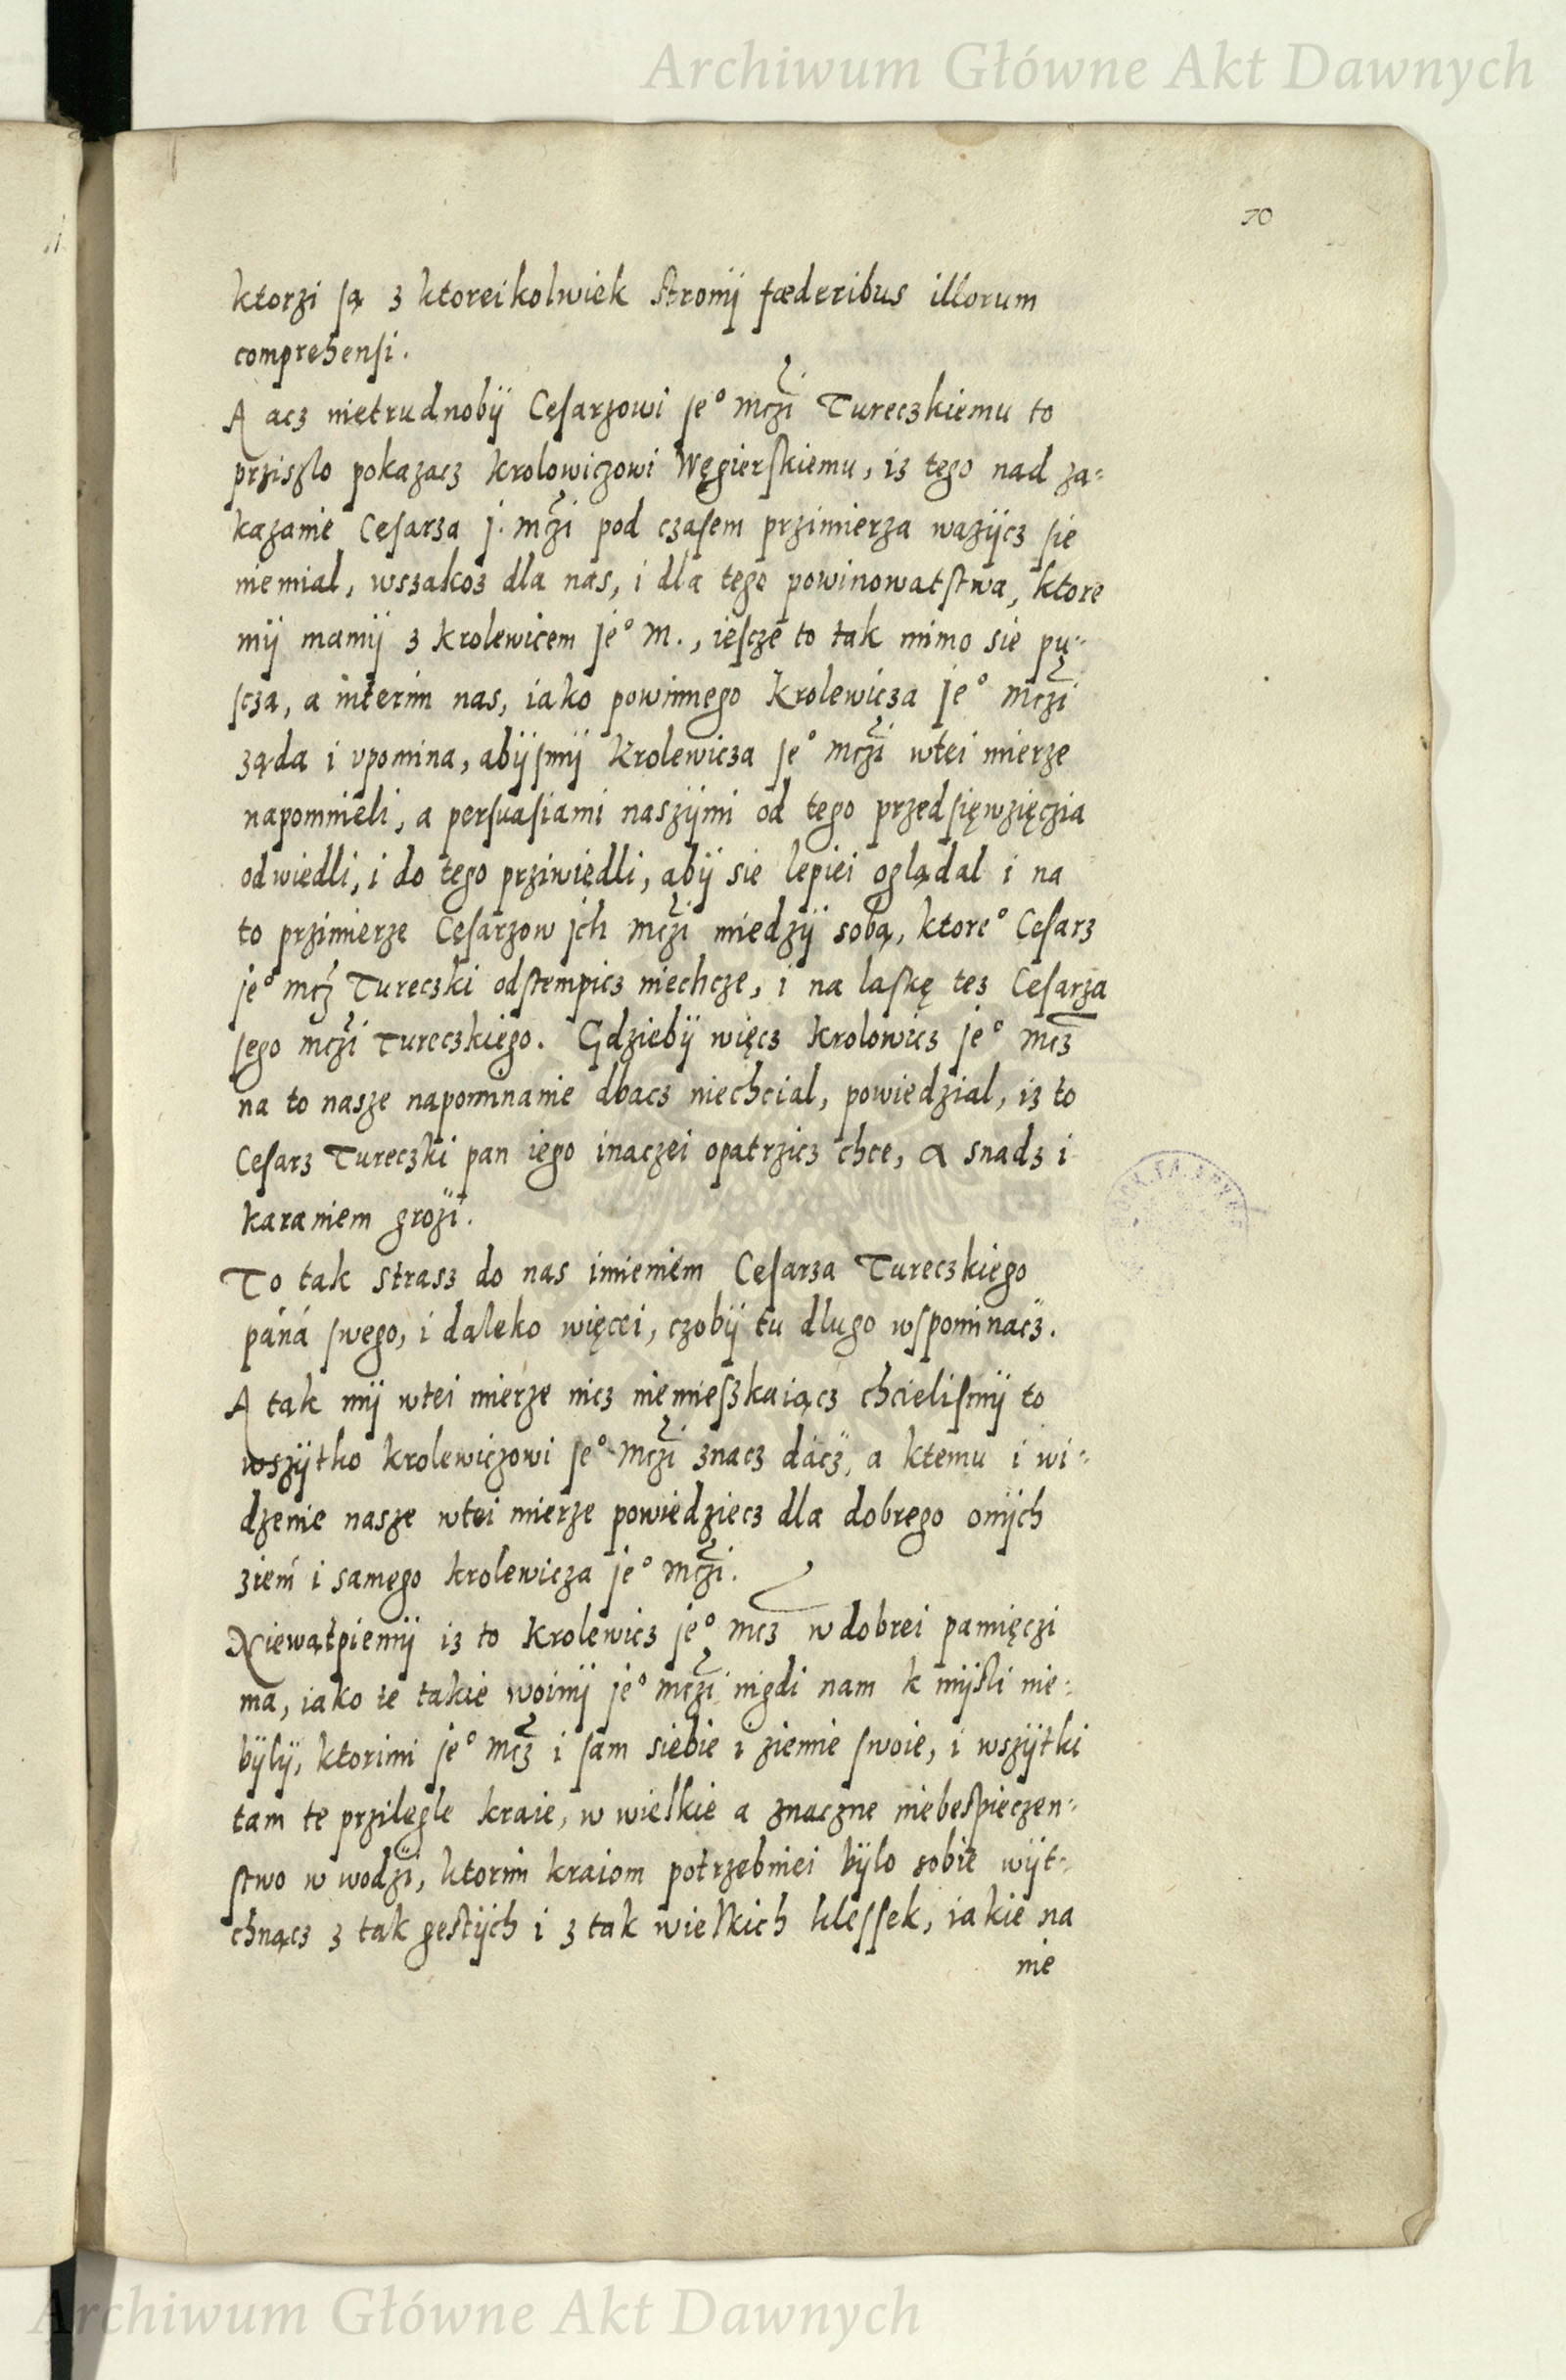 Archiwum Główne Akt Dawnych
70
ktorzi ſą z ktoreikolwiek ſtronÿ fæderibus illorum
comprehenſi.
A acz nietrudnobÿ Ceſarzowi je° mczi Tureczkiemu to
prziszlo pokazacz krolowiczowi Węgierſkiemu, iz tego nad za⸗
kazanie Ceſarza j. mczi pod czaſem przimierza wazÿcz ſie
niemial, wszakoz dla nas, i dla tego powinowatſtwa, ktore
mÿ mamÿ z krolewicem je° M., ieſcze to tak mimo sie pu⸗
ſcza, a interim nas, iako powinnego krolewicza je° mczi
ząda i vpomina, abÿſmÿ krolewicza je° mczi wtei mierze
napomnieli, a perſuaſiami naszÿmi od tego przedſięwzięczia
odwiedli, i do tego prziwiedli, abÿ sie lepiei oglądal i na
to przimierze Ceſarzow jch mczi miedzÿ sobą, ktore° Ceſarz
je° mcz Tureczki odſtempicz niechcze, i na laſkę tez Ceſarza
jego mczi Tureczkiego. Gdziebÿ więcz krolowicz je° mcz
na to nasze napominanie dbacz niechcial, powiedzial, iz to
Ceſarz Tureczki pan iego inaczei opatrzicz chce, a snadz i
karaniem grozi.
To tak strasz do nas imieniem Ceſarza Tureczkiego
páná ſwego, i daleko więcei, czobÿ tu dlugo wſpominacz.
A tak mÿ wtei mierze nicz niemieſzkaiącz chcieliſmÿ to
wszÿtko krolewiczowi je° mczi znacz dácz, a ktemu i wi⸗
dzenie nasze wtei mierze powiedziecz dla dobrego onÿch
ziem i samego krolewicza je° mczi.
Niewątpiemÿ iz to krolewicz je° mcz w dobrei pamięczi
ma, iako te takie woinÿ je° mczi nigdi nam k mÿſli nie⸗
bÿlÿ, ktorimi je° mcz i ſam siebie i ziemie ſwoie, i wszÿtki
tam te przilegle kraie, w wielkie a znaczne niebeſpieczen⸗
ſtwo w wodzi, ktorim kraiom potrzebniei bÿlo sobie wÿt⸗
chnącz z tak geſtÿch i z tak wielkich kleſſek, iakie na
nie
Archiwum Główne Akt Dawnych